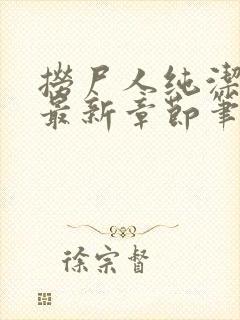 撈尸人纯潔
最新章節筆
徐宗督